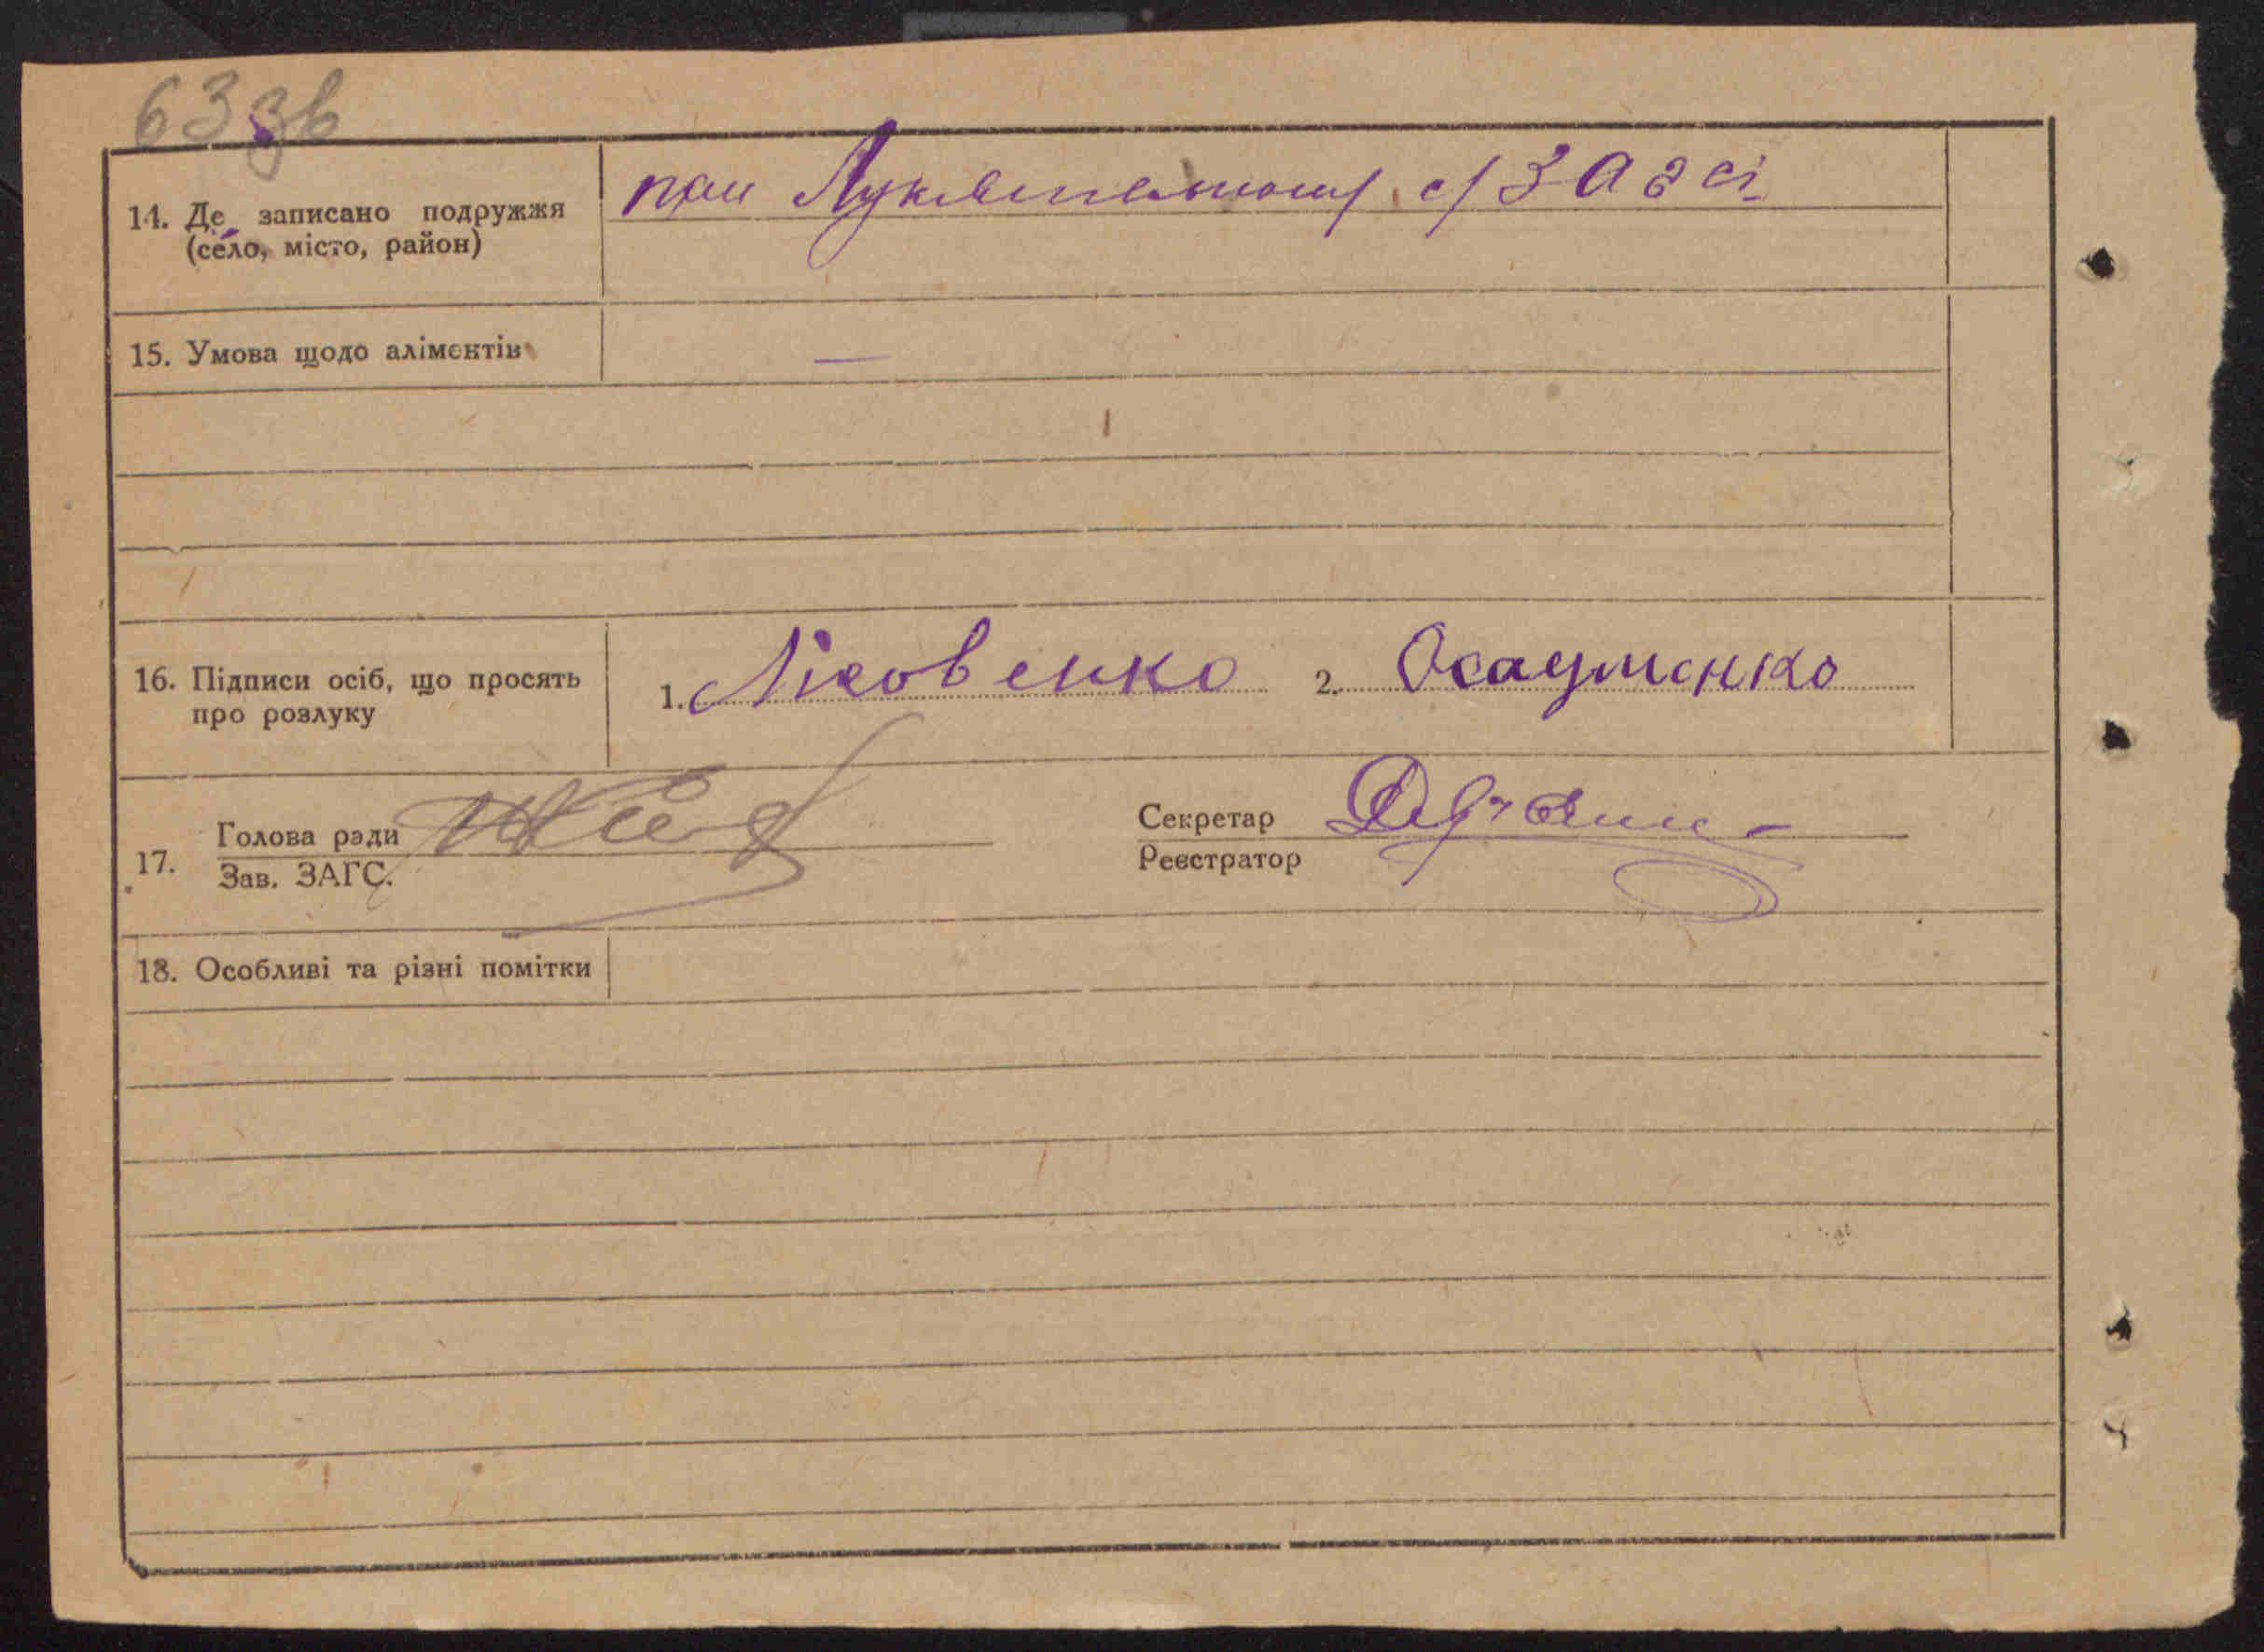 63 зв
14. Де записано подружжя
(село, місто, район)
при с/ЗАГСі
15. Умова щодо аліментів —
16. Підписи осіб, що просять
про розлуку
1. Яковенко 2. Осауленко
17. Голова ради
Зав. ЗАГС.
Секретар
Реєстратор
18. Особливі та різні помітки